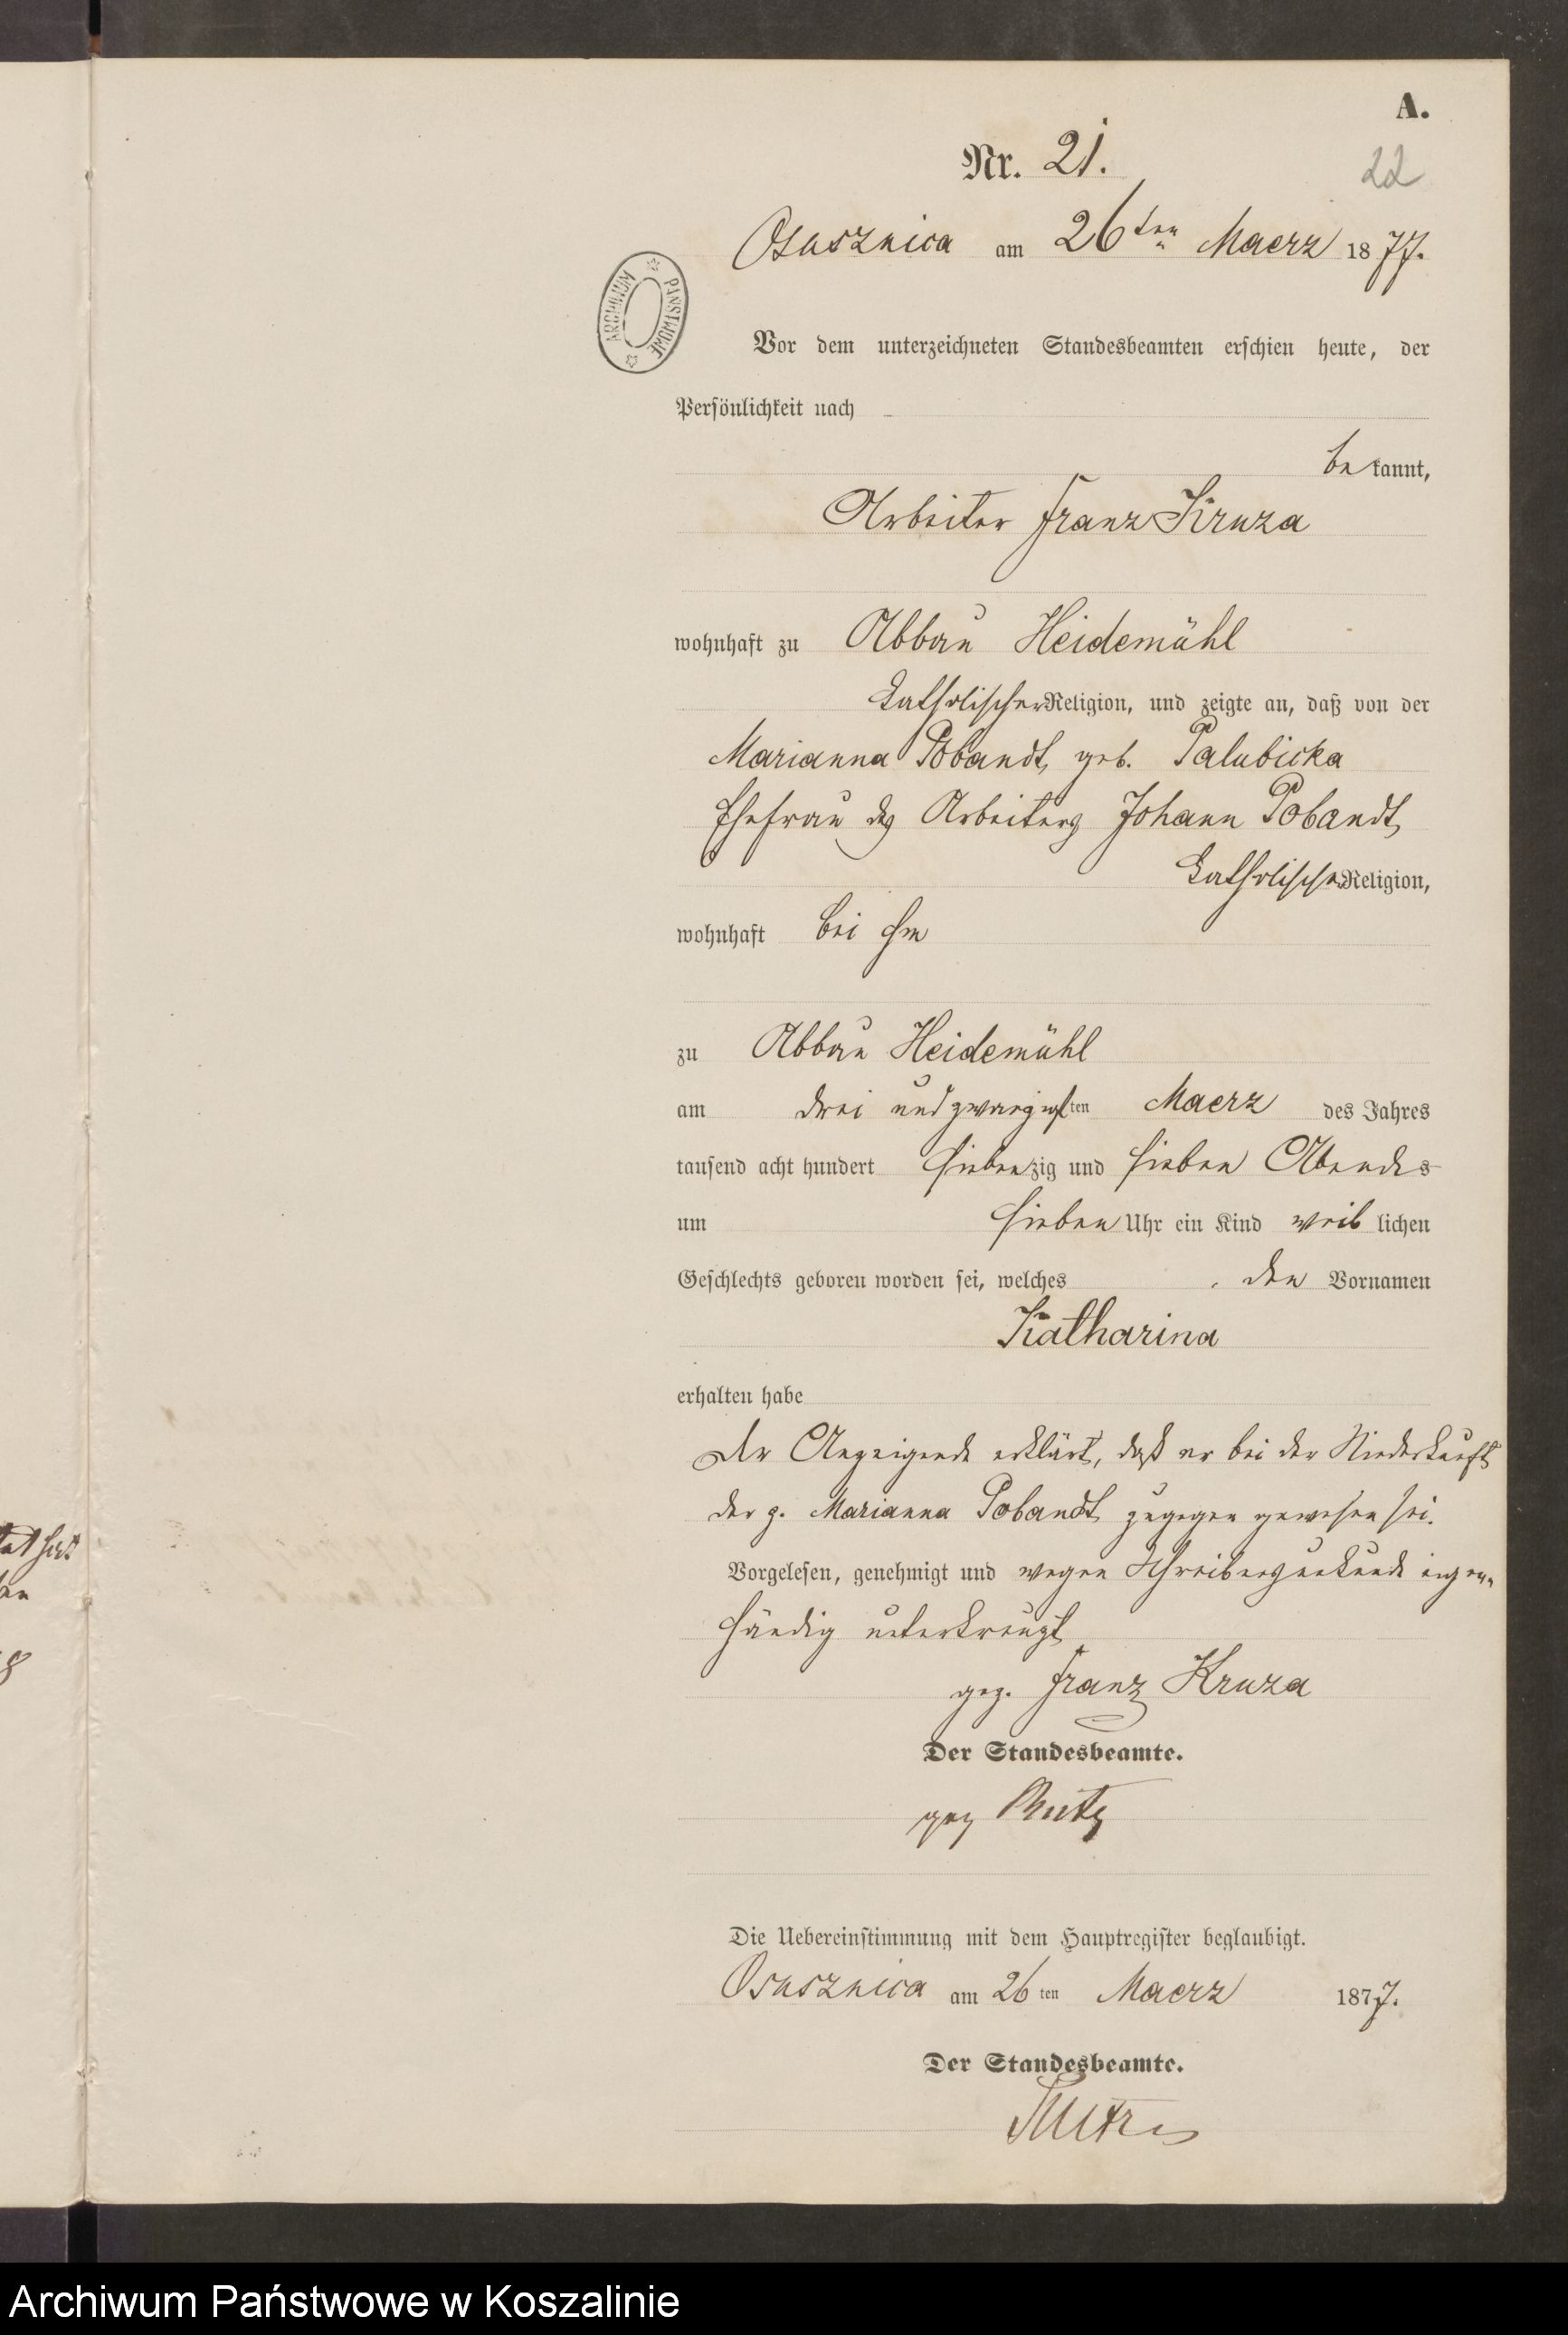 A.
Nr. 21.
22
Osusznica am 26ten Maerz 1877.
ARCHIWUM PAŃSTWOWE
Vor dem unterzeichneten Standesbeamten erschien heute, der
Persönlichkeit nach –
bekannt,
Arbeiter Franz Kruza
wohnhaft zu Abbau Heidemühl
katholischer Religion, und zeigte an, daß von der
Marianna Pobandt, geb. Palubicka
Ehefrau des Arbeiters Johann Pobandt,
katholischer Religion,
wohnhaft bei ihm
zu Abbau Heidemühl
am drei und zwanzigsten Maerz des Jahres
tausend acht hundert siebenzig und sieben Abends
um sieben Uhr ein Kind weiblichen
Geschlechts geboren worden sei, welches den Vornamen
Katharina
erhalten habe
Der Anzeigende erklärt, daß er bei der Niederkunft
der p. Marianna Pobandt zugegen gewesen sei.
Vorgelesen, genehmigt und wegen Schreibensunkunde eigen-
händig unterkreuzt
gez. Franz Kruza
Der Standesbeamte.
gez
Die Uebereinstimmung mit dem Hauptregister beglaubigt.
Osusznica am 26ten Maerz 1877.
Der Standesbeamte.
Archiwum Państwowe w Koszalinie